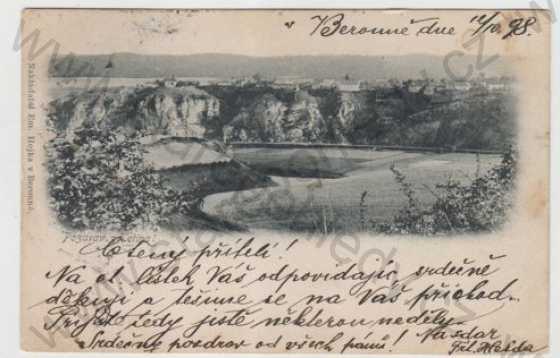 v Berouně dne 12/10 98.
Nákladatel Em. Hojka v Berouně.
Pozdrav z
Ctěný příteli!
Na ct. lístek Váš odpovídajíc, srdečně
děkuji a těšíme se na Váš příchod.
Přijďte tedy jistě některou neděli.
Srdečný pozdrav od všech pánů! Nazdar